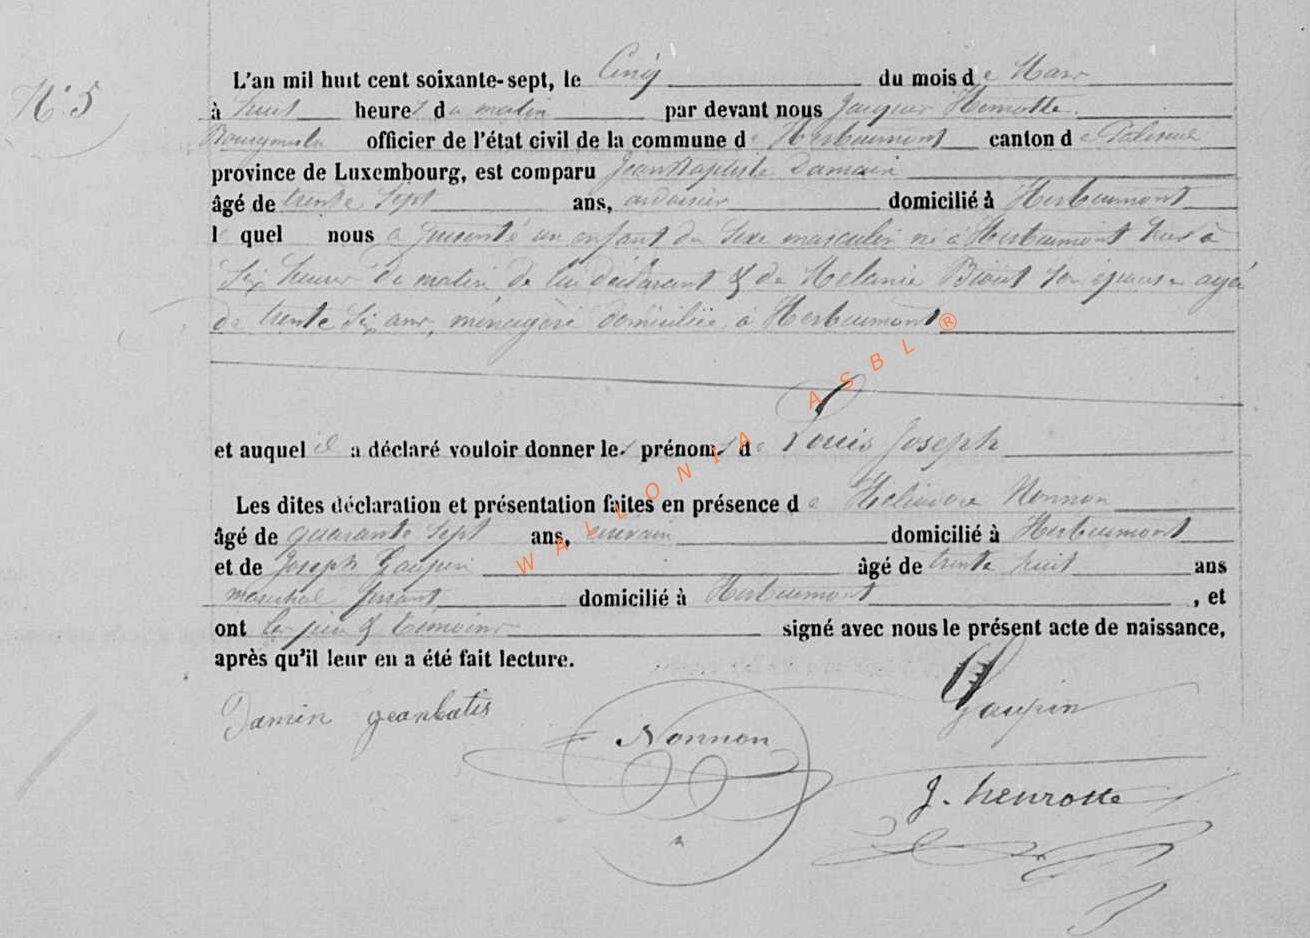 N° 5
L'an mil huit cent soixante-sept, le Cinq du mois de Mars
à huit heures du matin par devant nous Jacques Henrotte
Bourgmestre officier de l'état civil de la commune de Herbeumont canton de Paliseul
province de Luxembourg, est comparu Jean Baptiste Damain
âgé de trente sept ans, ardoisier domicilié à Herbeumont
lequel nous a présenté un enfant du sexe masculin né à Herbeumont hier à
six heures du matin de lui déclarant & de Mélanie son épouse agée
de trente six ans, ménagère domiciliée à Herbeumont
et auquel il a déclaré vouloir donner les prénoms de Louis Joseph
Les dites déclaration et présentation faites en présence de Nonnon
âgé de quarante sept ans, écrivain domicilié à Herbeumont
et de Joseph Gaupin âgé de trente huit ans
maréchal ferrant domicilié à Herbeumont, et
ont les père & témoins signé avec nous le présent acte de naissance,
après qu'il leur en a été fait lecture.
Damin geanbatis
Nonnon
Gaupin
J. henrotte
WALLONIA ASBL ®